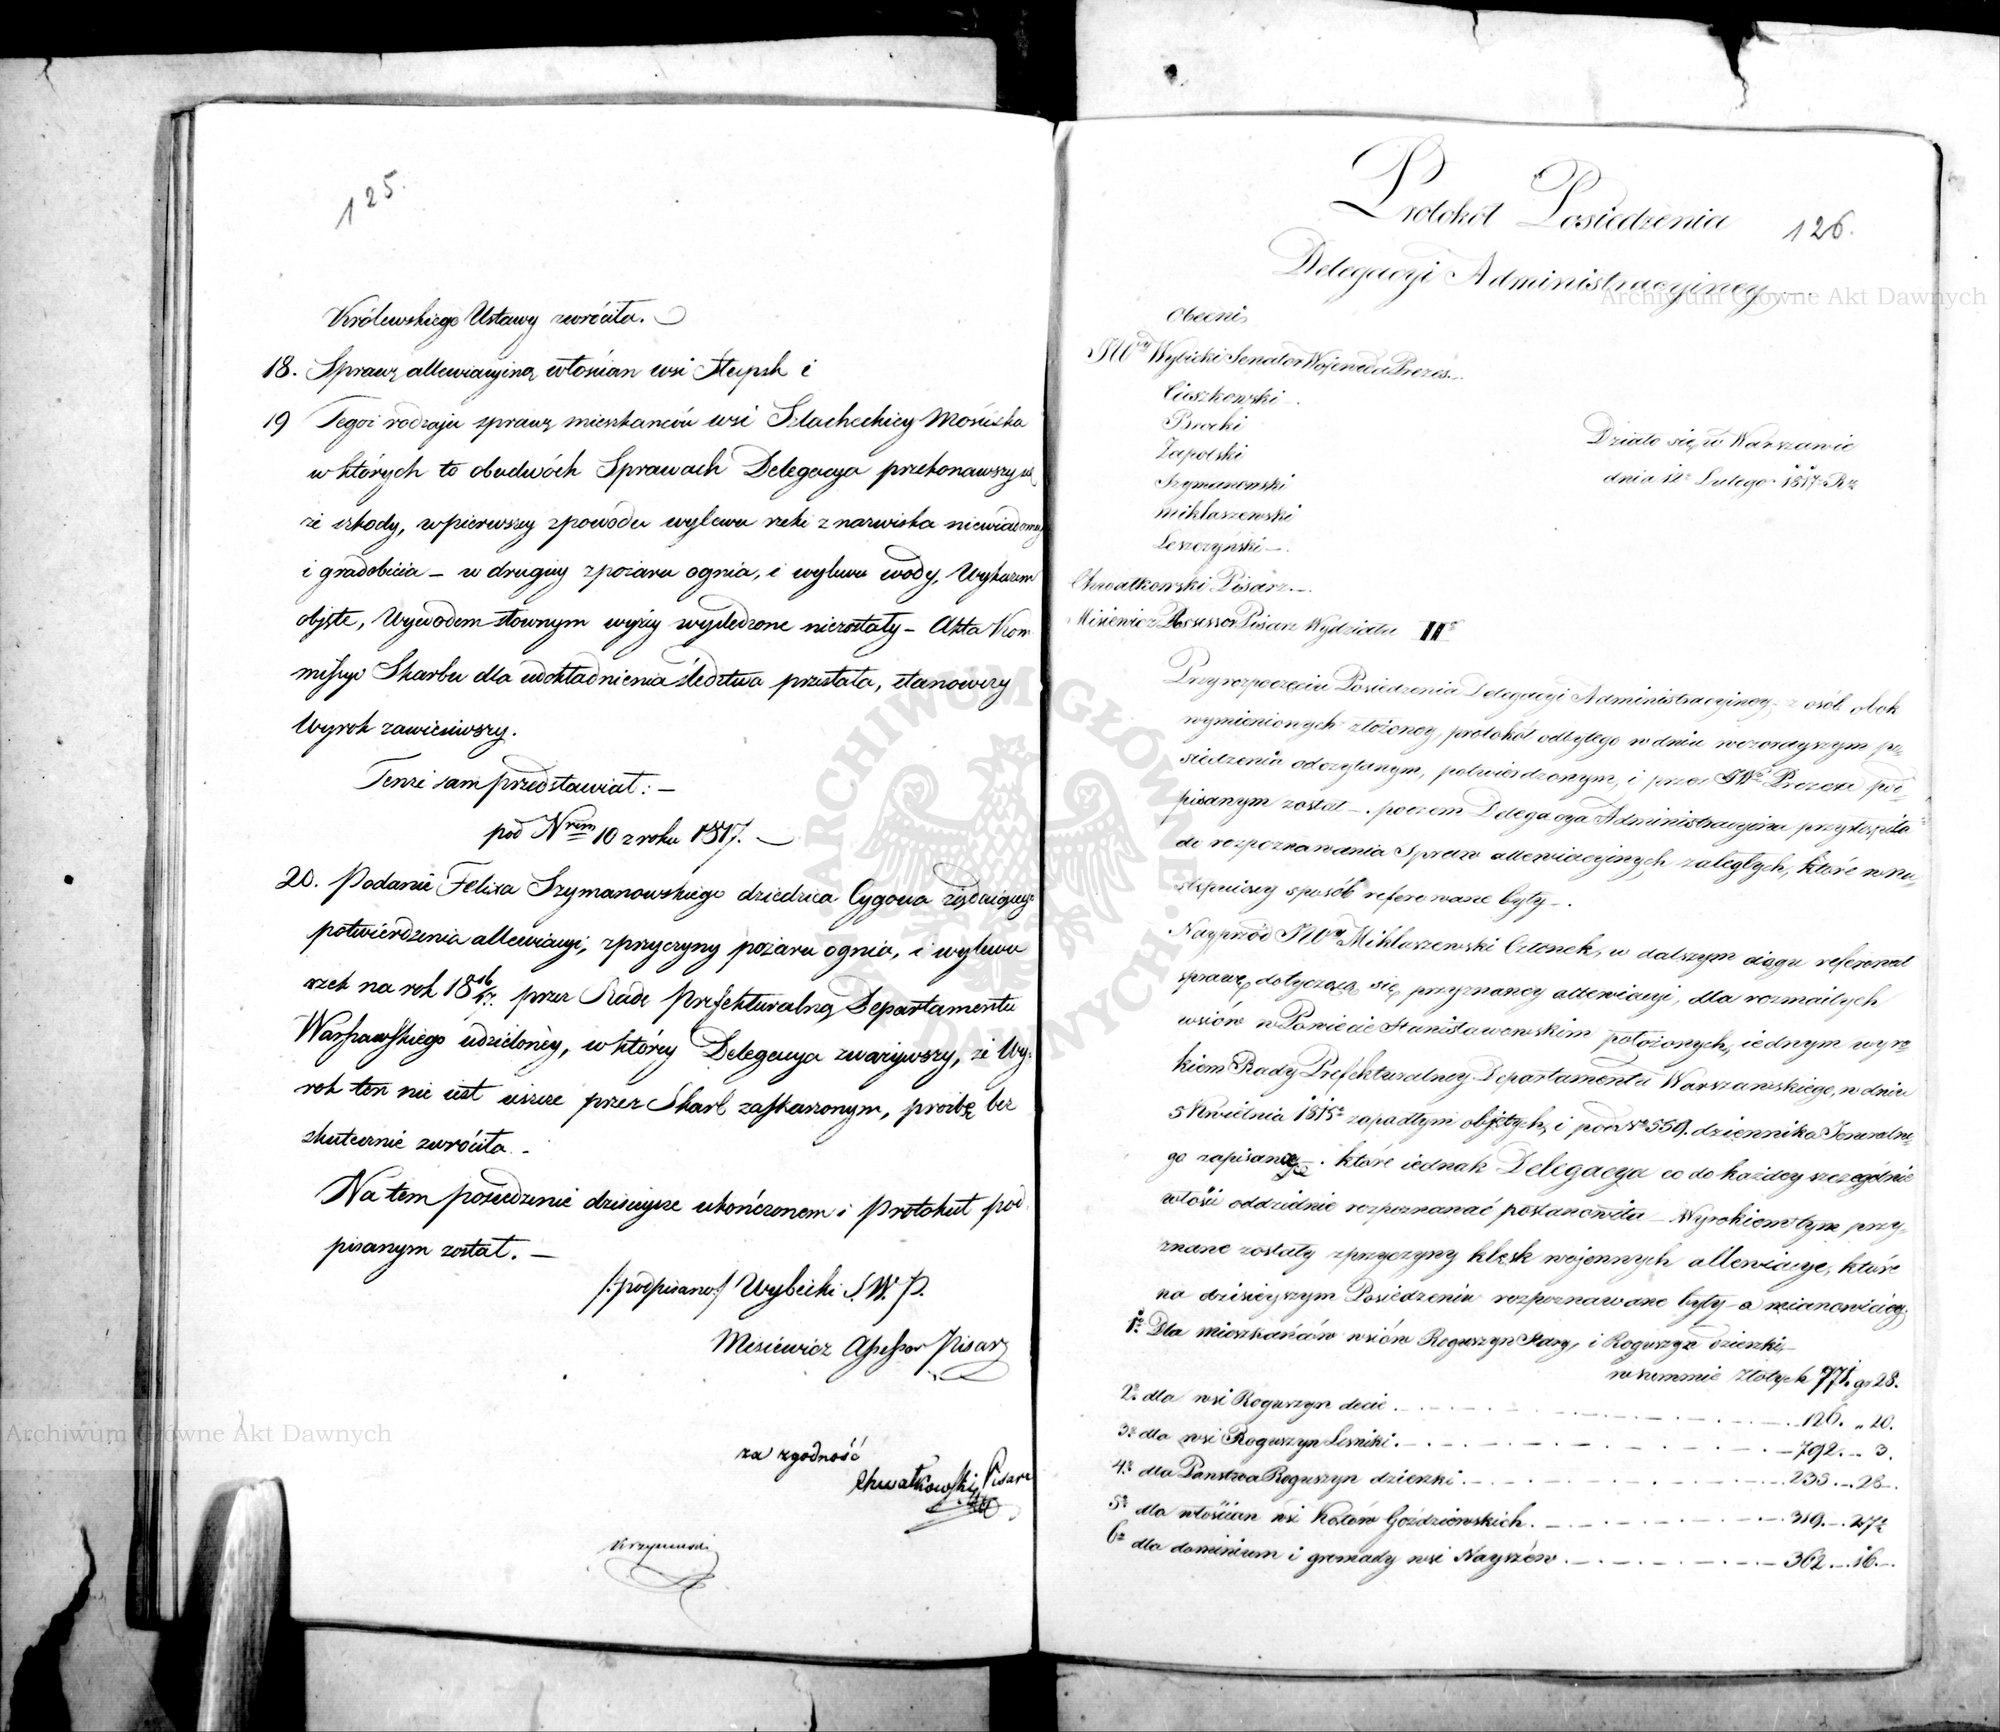 125.
Królewskiego Ustawy zwróciła.
18. Sprawę allewiacyiną włościan wsi Słupsk i
19 Tegoż rodzaju sprawę mieszkańców wsi Szlacheckiey Mościska
w których to obudwóch Sprawach Delegacya przekonawszy się
że szkody, w pierwszey z powodu wylewu rzeki z nazwiska niewiadomey
i gradobicia – w drugiey z pożaru ognia, i wylewu wody, Wykazem
objęte, Wywodem słownym wyżey wyśledzone niezostały – Akta Kom
missyi Skarbu dla udokładnienia śledztwa przesłała, stanowczy
Wyrok zawiesiwszy.
Tenże sam przedstawiał: –
pod Nrem 10 z roku 1817. –
20. Podanie Felixa Szymanowskiego dziedzica Cygowa żądaiącego
potwierdzenia allewiacyi, z przyczyny pożaru ognia, i wylewu
rzek na rok 18 16/17. przez Radę Prefekturalną Departamentu
Warszawskiego udzieloney, w którey Delegacya zważywszy, że Wy-
rok ten nie iest ieszcze przez Skarb zaskarżonym, prożbę bez
skutecznie zwróciła –
Na tem posiedzenie dzisieysze ukończonem i Protokuł pod
pisanym został. –
/:podpisano:/ Wybicki S. W. P.
Misiewicz Assessor Pisarz
za zgodność
Chwałkowski Pisarz
Protokół Posiedzenia
126.
Delegacyi Administracyiney
Obecni
JWny Wybicki Senator Wojewoda Prezes. –
Cieszkowski –
Brocki
Zapolski
Szymanowski
Miklaszewski
Leszczyński –
Chwałkowski Pisarz. –
Misiewicz Assessor Pisarz Wydziału II°
Działo się w Warszawie
dnia 12° Lutego 1817 Rr
Przy rozpoczęciu Posiedzenia Delegacyi Administracyiney, z osób obok
wymienionych złożoney, protokół odbytego w dniu wczorayszym po-
siedzenia odczytanym, potwierdzonym, i przez JWo Prezesa pod-
pisanym został –. poczem Delegacya Administracyina przystąpiła
do rozpoznawania Spraw allewiacyinych zaległych, które w na-
stępuiący sposób referowane były –.
Nayprzód JWny Miklaszewski Członek, w dalszym ciągu referował
sprawę dotyczącą się przyznaney allewiacyi, dla rozmaitych
wsiów w Powiecie Stanisławowskim położonych, iednym wyro-
kiem Rady Prefekturalney Departamentu Warszawskiego, w dniu
5 Kwietnia 1815° zapadłym objętych, i pod Nr 559. dziennika Jeneralne-
go zapisane . które iednak Delegacya co do każdey szczególnie
włości oddzielnie rozpoznawać postanowiła – Wyrokiem tym przy-
znane zostały z przyczyny klęsk wojennych allewiacye, które
na dzisieyszym Posiedzeniu rozpoznawane były – a mianowiciey
1° Dla mieszkańców wsiów Roguszyn Stary, i Roguszyn dzierżki –
w summie złotych 771. gr 28.
2° dla wsi Roguszyn decie . – . – . – 126. „ 20.
3° dla wsi Roguszyn Leśniki . – . – . – 792. – 3.
4° dla Państwa Roguszyn dzierżki . – . – . – 235. – 26 –.
5° dla włościan wsi Kosów Goździowskich . – . – . – 319. – 27½
6° dla dominium i gromady wsi Nayszew . – . – . – 362. – 16. –
Archiwum Główne Akt Dawnych
Archiwum Główne Akt Dawnych
ARCHIWUM GŁÓWNE AKT DAWNYCH